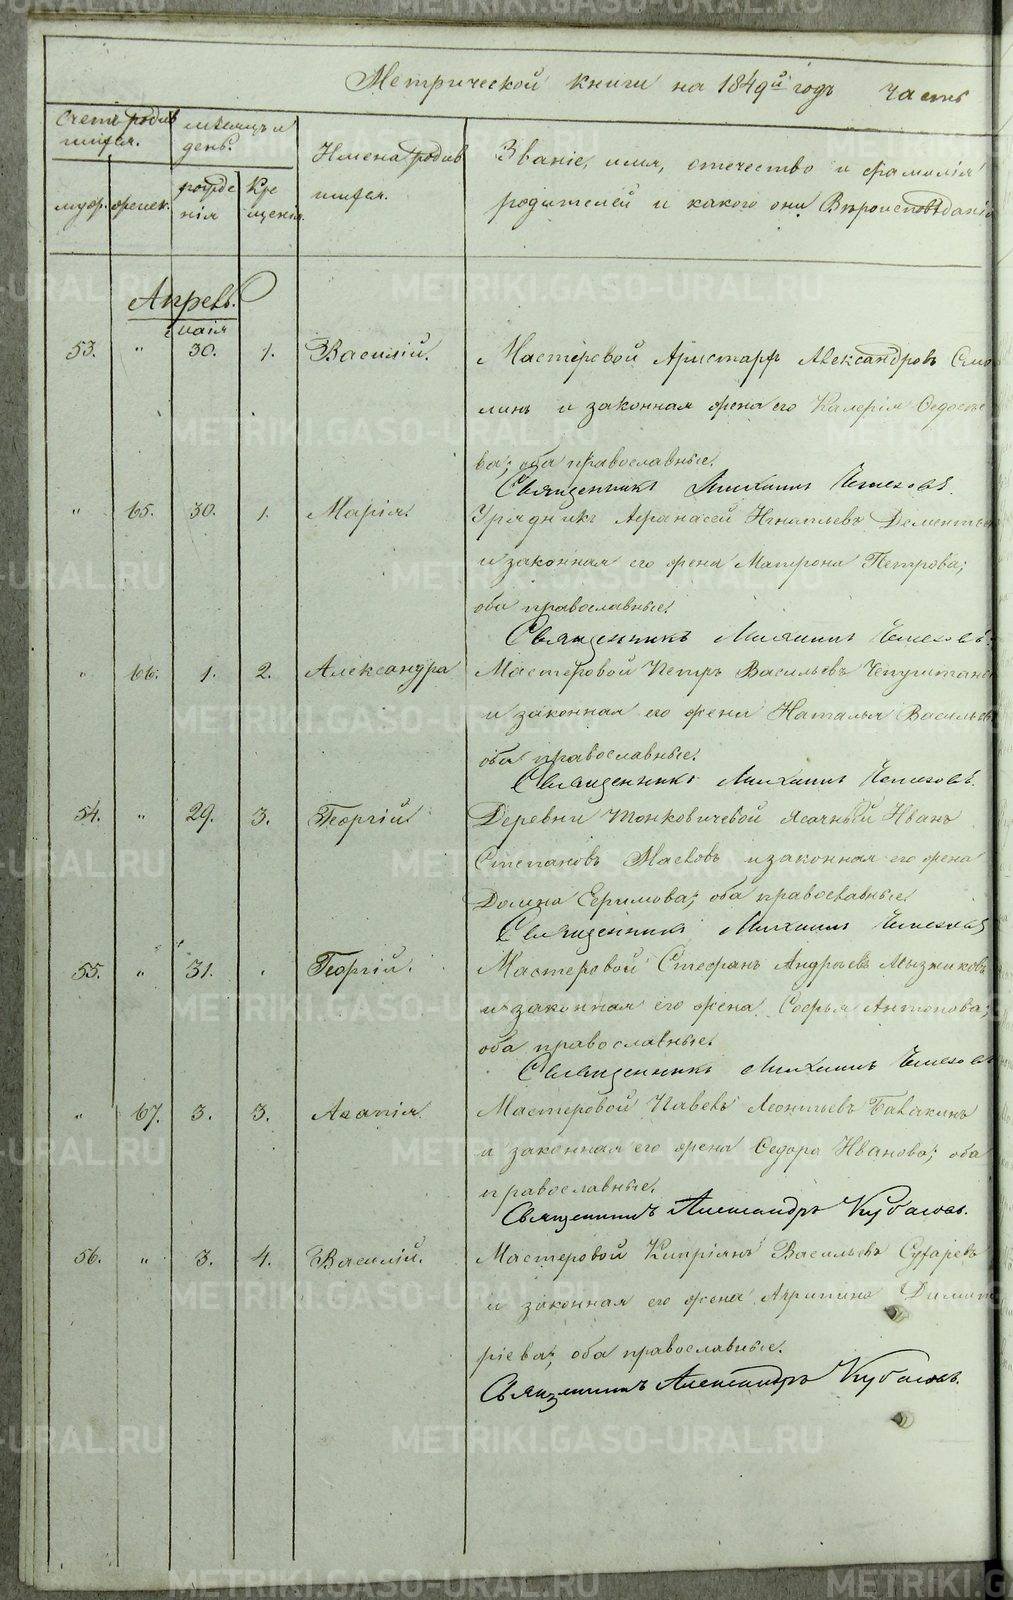 Метрической книги на 1849й годъ часть
Счетъ родив
шихся.
мѣсяцъ и
день.
Имена родив
шихся.
Званіе, имя, отечество и фамилія
родителей и какого они Вѣроисповѣданія
муж. женск.
рожде
нія
Кре
щенія.
Апрель.
маія
53. " 30. 1. Василій. Мастеровой Аристархъ Александровъ Смо
линъ и законная жена его Калерія Федосѣе
ва; оба православные.
Священникъ Михаилъ
" 65. 30. 1. Марія. Урядникъ Афанасей Игнатьевъ Дементьевъ
и законная его жена Матрона Петрова;
оба православные.
Священникъ Михаилъ
" 66. 1. 2. Александра Мастеровой Петръ Васильевъ
и законная его жена Наталья Васильева
оба православные.
Священникъ Михаилъ
54. " 29. 3. Георгій. Деревни Тонковичевой Ясачный Иванъ
Степановъ Масловъ и законная его жена
Домна Ефимова; оба православные.
Священникъ Михаилъ
55. " 31. . Георгій. Мастеровой Стефанъ Андреевъ Мызниковъ
и законная его жена Софья Антонова;
оба православные.
Священникъ Михаилъ
" 67. 3. 3. Агапія. Мастеровой Павелъ Леонтьевъ Балакинъ
и законная его жена Федора Иванова; оба
православные.
Священникъ Александръ Кубасовъ.
56. " 3. 4. Василій. Мастеровой Кипріанъ Васильевъ Сухаревъ
и законная его жена Агрипина Димит
ріева; оба православные.
Священникъ Александръ Кубасовъ.
METRIKI.GASO-URAL.RU